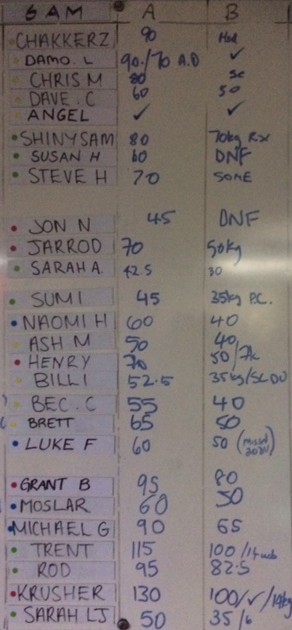 6 AM A B
CHAKKERZ 90
DAMO. L 90./70 A.D ✓
CHRIS M 80 50
DAVE. C 60 50
ANGEL ✓ ✓
SHINYSAM 80 70kg Rx
SUSAN H 60 DNF
STEVE H 70 SOME
JON N 45 DNF
JARROD 70 50kg
SARAH A. 42.5 30
SUMI 45 35kg P.C.
NAOMI H 60 40
ASH M 50 40
HENRY 70 50
BILLI 52.5 35kg
BEC. C 55 40
BRETT 65 50
LUKE F 60 50
GRANT B 95 80
MOSLAR 60 50
MICHAEL G 90 65
TRENT 115 100
ROD 95 82.5
KRUSHER 130 100/✓
SARAH LJ 50 35/6